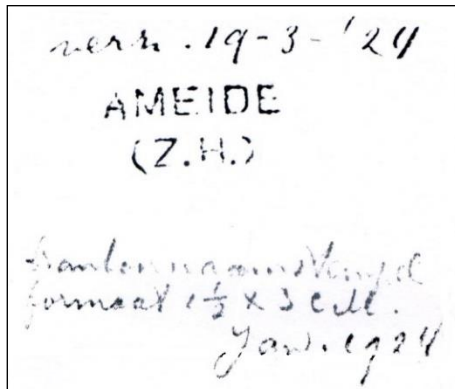 verz. 19-3-'24
AMEIDE
(Z.H.)
kantoornaamstempel
formaat 1½ x 3 cM.
Jan. 1924